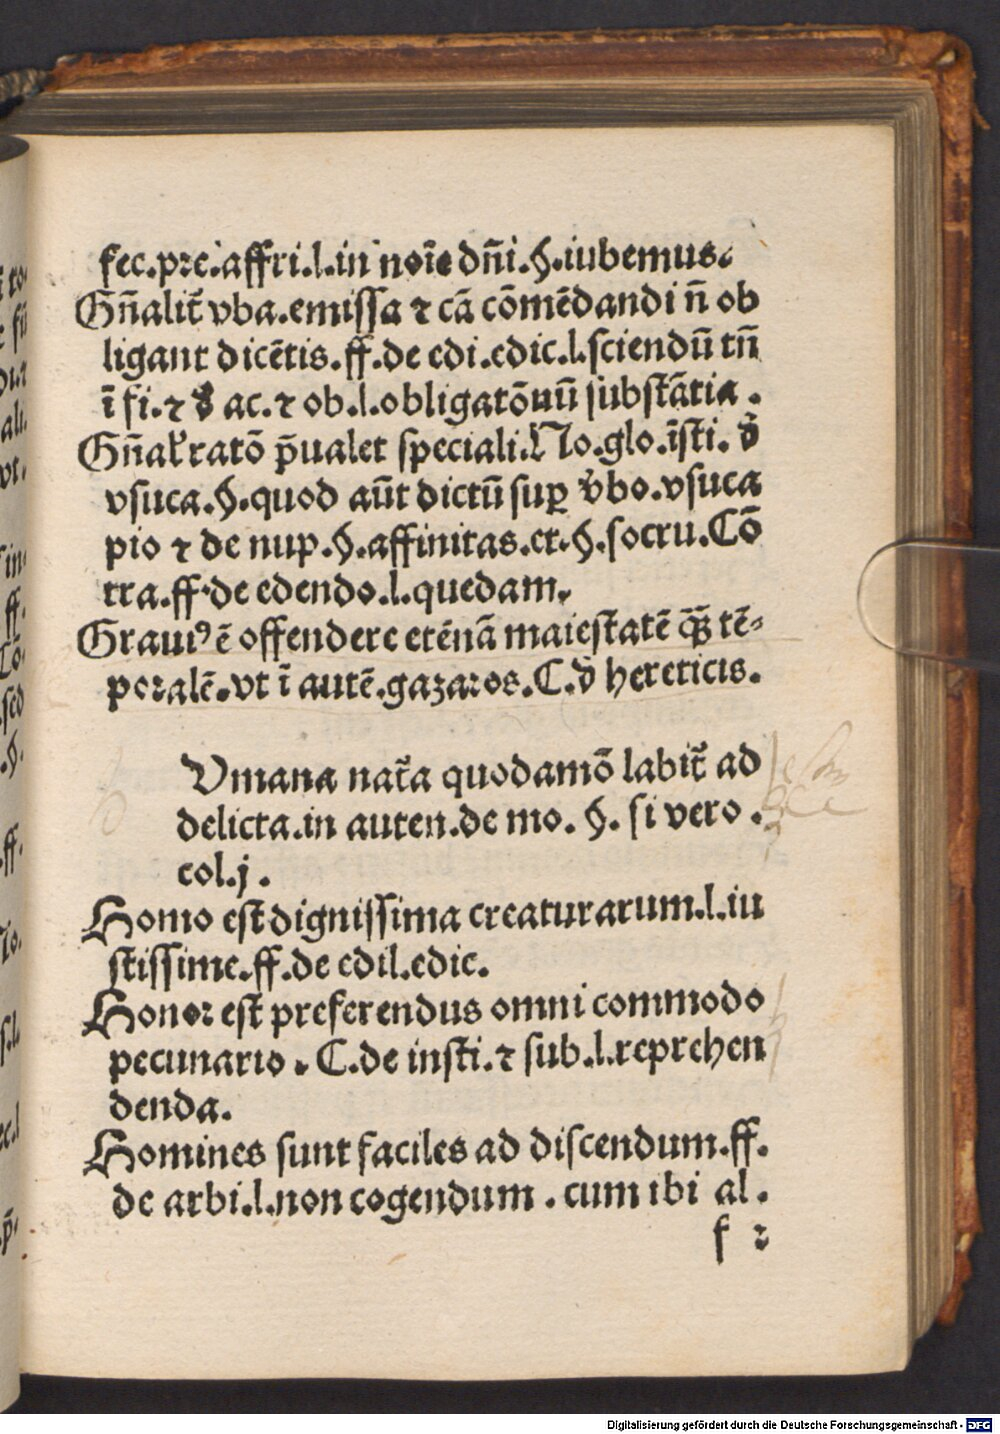 fec.pre.affri.l.in noīe dn̄i.§.iubemus.
Gn̄alit̄ vba.emissa ⁊ cā cōmēdandi n̄ ob
ligant dicētis.ff.de edi.edic.l.sciendū tn̄
ī fi.⁊ đ ac.⁊ ob.l.obligatōnū substātia.
Gn̄al' ratō p̄ualet speciali. No.glo.īsti. đ
vsuca.§.quod aūt dictū suꝑ v̄bo.vsuca
pio ⁊ de nup.§.affinitas.et.§.socru.Cō
tra.ff.de edendo.l.quedam.
Grauiꝰ ē offendere etēnā maiestatē qͣꝫ tē-
poralē.vt ī autē.gazaros.C.đ hereticis.
Vmana nat̄a quodamō labit̄ ad
delicta.in auten.de mo. §. si vero.
col.j.
Homo est dignissima creaturarum.l.iu
stissime.ff.de edil.edic.
Honor est preferendus omni commodo
pecunario. C.de insti.⁊ sub.l.reprehen
denda.
Homines sunt faciles ad discendum.ff.
de arbi.l.non cogendum. cum ibi al.
f 2
Digitalisierung gefördert durch die Deutsche Forschungsgemeinschaft - DFG